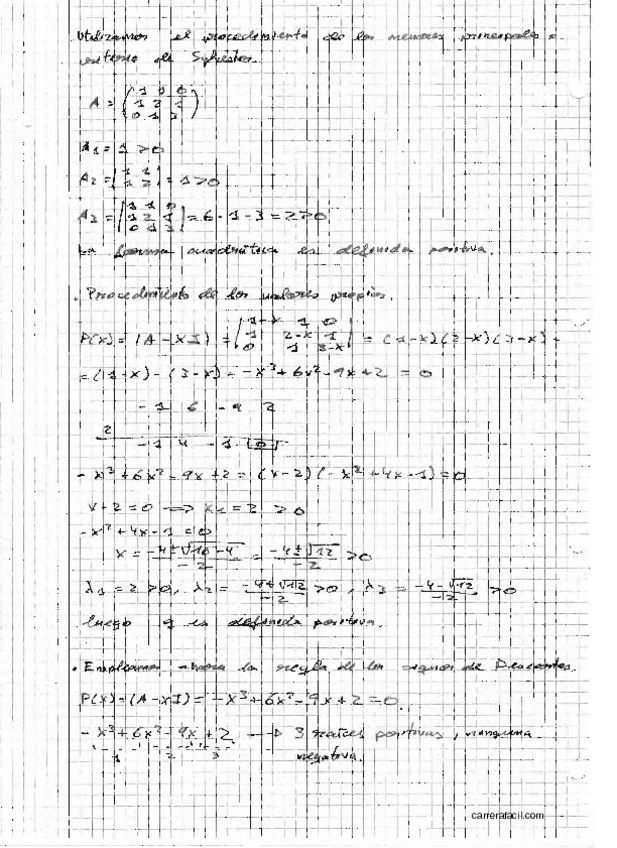 Utilizamos el procedimiento de los menores principales o
criterio de Sylvester.
A = ( 1 0 0
1 2 1
0 1 3 )
A1 = 1 > 0
A2 = | 1 1
1 2 | = 1 > 0
A3 = | 1 1 0
1 2 1
0 1 3 | = 6 - 1 - 3 = 2 > 0
La forma cuadrática es definida positiva.
. Procedimiento de los valores propios.
P(x) = (A - XI) = | 1-x 1 0
1 2-x 1
0 1 3-x | = (1-x)(2-x)(3-x) -
= (1-x) - (3-x) = -x³ + 6x² - 9x + 2 = 0
-1 6 -9 2
2
-1 4 -1 0
- x³ + 6x² - 9x + 2 = (x-2)(-x² + 4x - 1) = 0
x + 2 = 0 => x1 = 2 > 0
-x² + 4x - 1 = 0
x = (-4 ± √16 - 4) / -2 = (-4 ± √12) / -2 > 0
λ1 = 2 > 0, λ2 = (-4 + √12) / -2 > 0, λ3 = (-4 - √12) / -2 > 0
luego q es definida positiva.
. Empleamos ahora la regla de los signos de Descartes.
P(x) = (A - xI) = -x³ + 6x² - 9x + 2 = 0.
- x³ + 6x² - 9x + 2 → 3 raíces positivas, ninguna
1 2 3 negativa.
carrerafacil.com